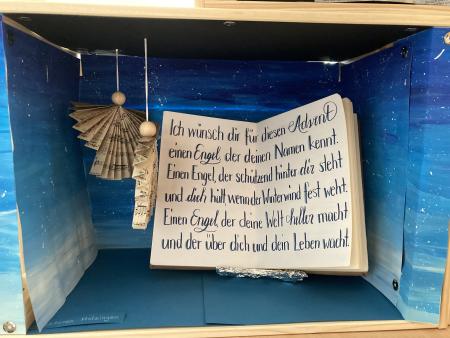 Ich wünsch dir für diesen Advent
einen Engel, der deinen Namen kennt.
Einen Engel, der schützend hinter dir steht
und dich hält, wenn der Winterwind fest weht.
Einen Engel, der deine Welt heller macht
und der über dich und dein Leben wacht.